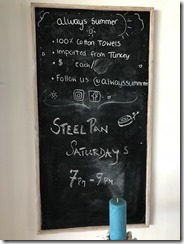 always summer
• 100% Cotton Towels
• imported from Turkey
• $ each!!
• Follow us @alwayssummer
STEEL PAN
SATURDAYS
7PM - 9PM